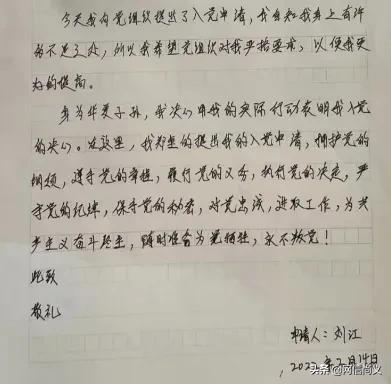 今天我向党组织提出了入党申请，我自知我身上有许
多不足之处，所以我希望党组织对我严格要求，以便我更
好的提高。
身为华夏子孙，我决心用我的实际行动表明我入党
的决心。在这里，我郑重的提出我的入党申请，拥护党的
纲领，遵守党的章程，履行党的义务，执行党的决定，严
守党的纪律，保守党的秘密，对党忠诚，进取工作，为共
产主义奋斗终生，随时准备为党牺牲，永不叛党！
此致
敬礼
申请人：刘江
2022年2月14日
头条 @网信尚义